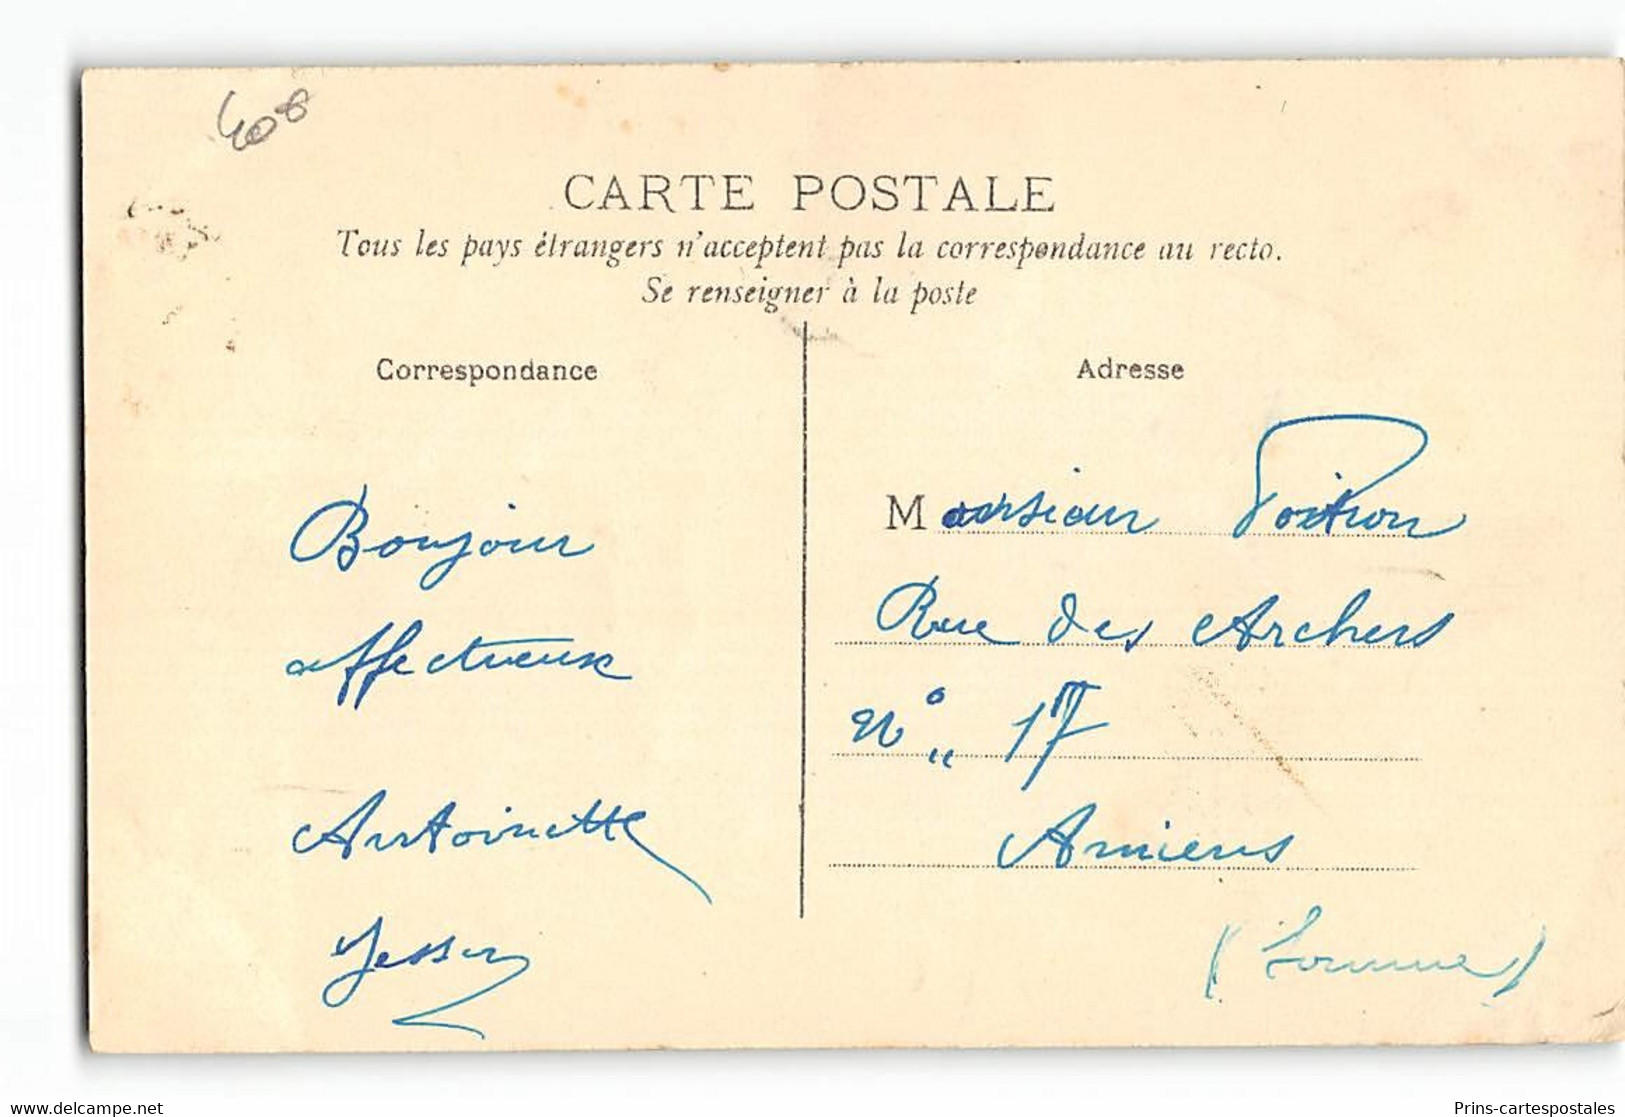 408
CARTE POSTALE
Tous les pays étrangers n'acceptent pas la correspondance au recto.
Se renseigner à la poste
Correspondance
Adresse
Bonjour
affectueux
Antoinette
Monsieur Poitron
Rue des Archers
N° 17
Amiens
(Somme)
www.delcampe.net
Prins-cartespostales